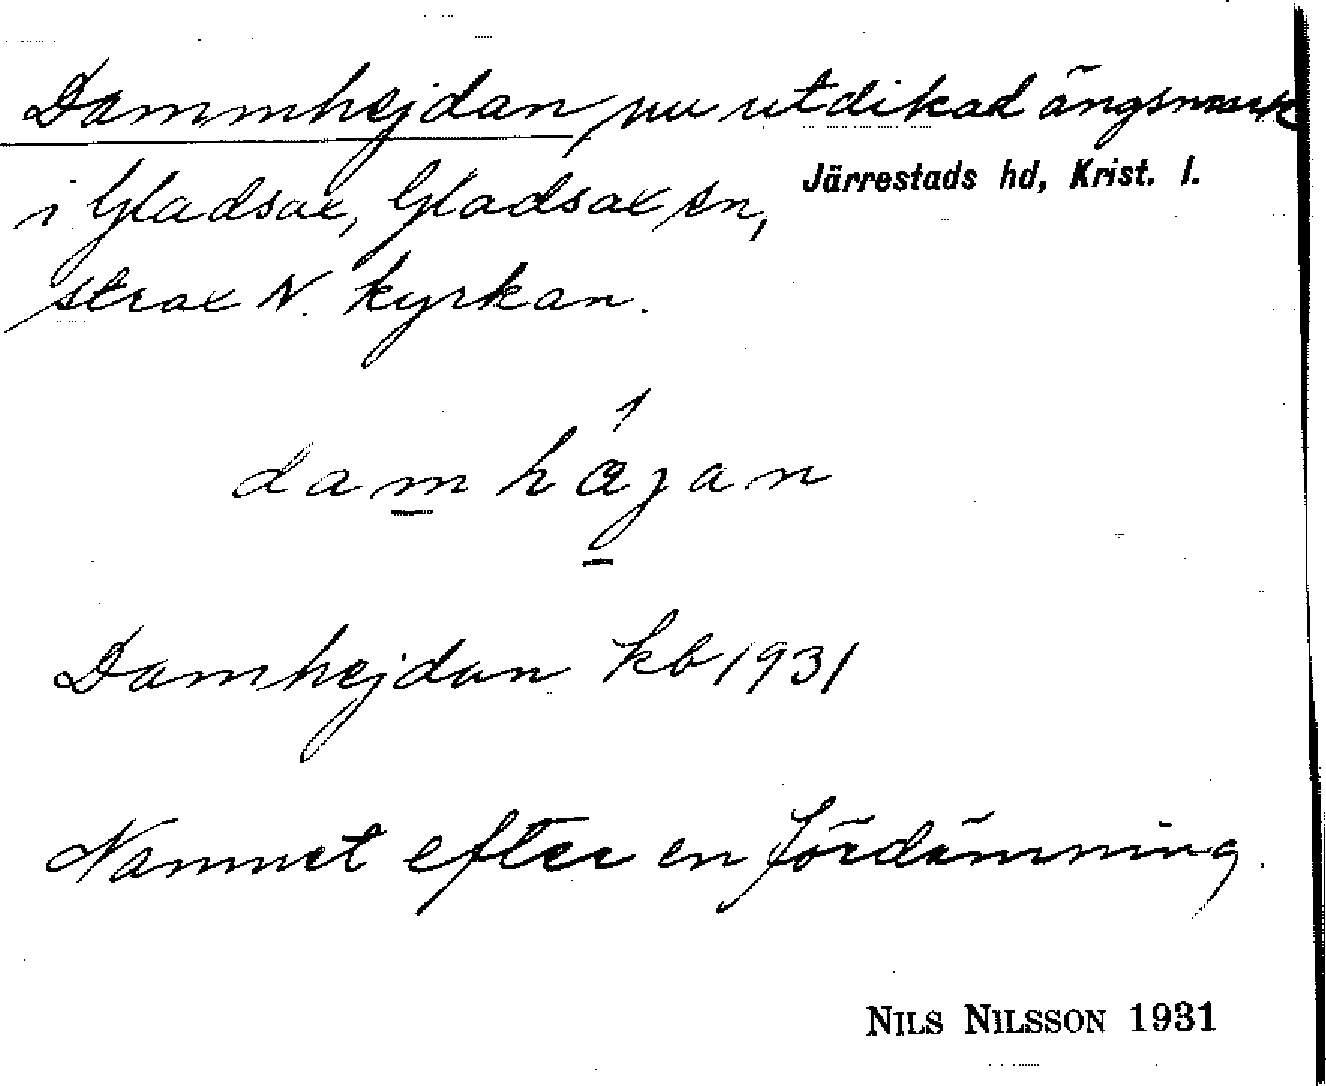 Dammhejdan nu utdikad ängsmark
i Gladsax, Gladsax sn,
Järrestads hd, Krist. l.
strax N. kyrkan.
damhæjan
Damhejdan kb 1931
Namnet efter en fördämning.
NILS NILSSON 1931